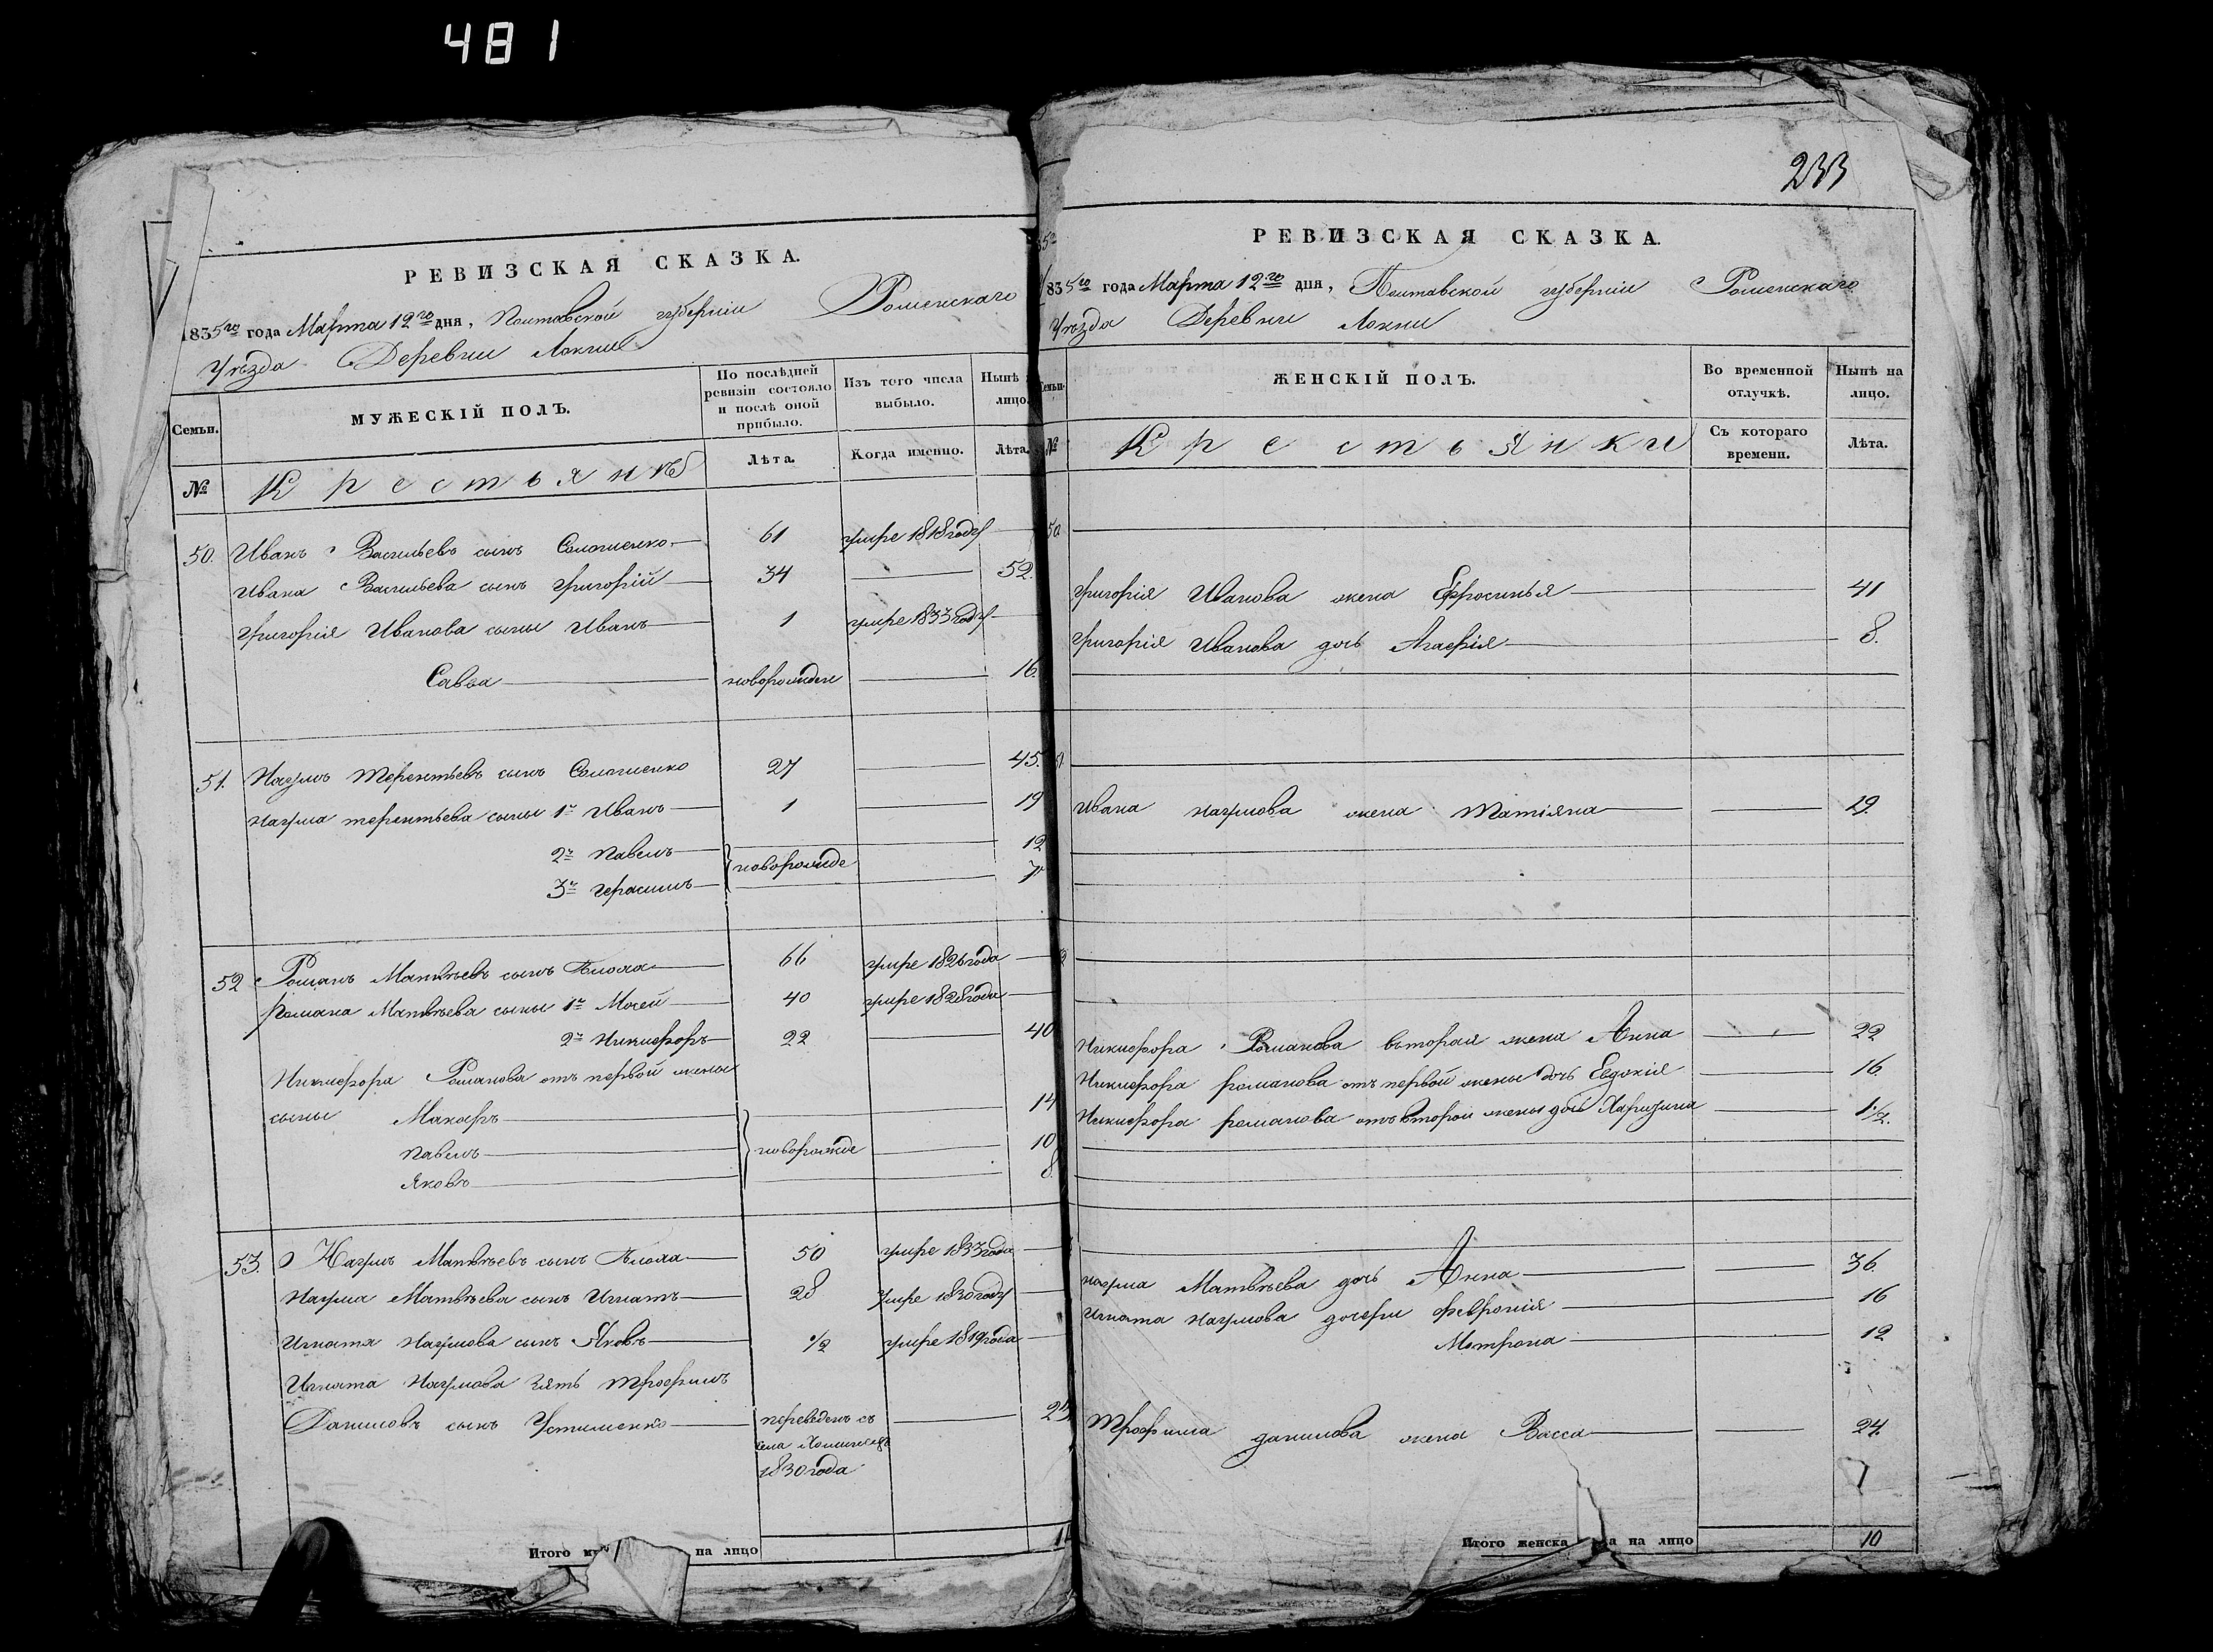 481
РЕВИЗСКАЯ СКАЗКА.
1835го года Марта 12го дня, Полтавской губерніи Роменскаго
Уѣзда Деревни Локни
Семьи.
МУЖЕСКІЙ ПОЛЪ.
По послѣдней ревизіи состояло и послѣ оной прибыло.
Изъ того числа выбыло.
Нынѣ лицо.
№
Крестьянъ
Лѣта.
Когда именно.
Лѣта.
50. Иванъ Васильевъ сынъ 61 умре 1818 году
Ивана Васильева сынъ Григорій 34 52.
Григорія Иванова сыны Иванъ 1 умре 1833 году
Савва новорожден 16.
51. Наумъ Терентьевъ сынъ 27 45.
Наума терентьева сыны 1й Иванъ 1 19
2й Павелъ 12
новорожде
3й Герасимъ 7
52 Романъ Матвѣевъ сынъ 66 умре 1826 года
Романа Матвѣева сыны 1й Мосей 40 умре 1828 года
2й Никифоръ 22 40
Никифора Романова отъ первой жены
сыны Макаръ 14
Павелъ новорожде 10
Яковъ 8.
53. Наумъ Матвѣевъ сынъ 50 умре 1833 года
Наума Матвѣева сынъ Игнатъ 28 умре 1830 году
Игната Наумова сынъ Яковъ 1/2 умре 1819 года
Игната Наумова зять Трофимъ
Даниловъ сынъ Устименко переведенъ съ
села
1830 года
Итого на лицо
233
РЕВИЗСКАЯ СКАЗКА.
1835го года Марта 12го дня, Полтавской губерніи Роменскаго
Уѣзда Деревни Локни
Семьи.
ЖЕНСКІЙ ПОЛЪ.
Во временной отлучкѣ.
Нынѣ на лицо.
№
Крестьянки
Съ котораго времени.
Лѣта.
50
Григорія Иванова жена Ефросинья 41
Григорія Иванова дочь Агафія 8.
Ивана наумова жена Татіяна 19.
Никифора Романова вторая жена Анна 22
Никифора романова отъ первой жены дочь Евдокія 16.
Никифора романова отъ второй жены дочь 1 1/2.
наума Матвѣева дочь Анна 36.
Игната наумова дочери Февронія 16
Мотрона 12
Трофима данилова жена Васса 24.
Итого женска на лицо 10